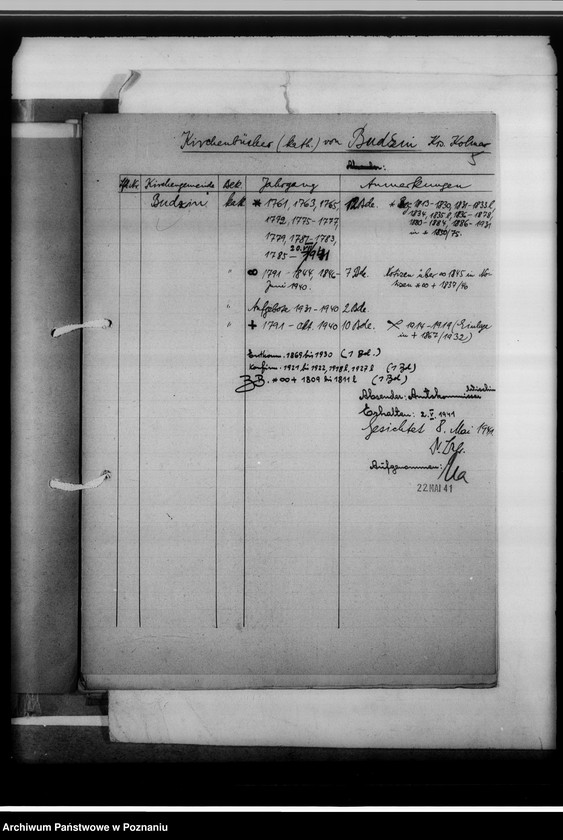 Kirchenbücher (kath.) von Budsin Krs. Kolmar
Lfd.Nr. Kirchengemeinde Bek. Jahrgang Anmerkungen
Budsin kath. * 1761, 1763, 1765, 12 Bde.
1772, 1775-1777,
1779, 1781-1783,
1785- 1941
+ 1813-1830, 1831-1833 l,
1834, 1835 l, 1836-1878,
1880-1884, 1886-1931
in + 1830/75.
" ∞ 1791-1844, 1846- 7 Bde. Notizen über ∞ 1845 in
Juni 1940.
" Aufgebote 1931-1940 2 Bde.
" + 1791- okt. 1940 10 Bde. 1914-1919 (Einlage
in + 1867/1932)
1869 bis 1930 (1 Bd.)
Konfirm. 1921 bis 1922, 1918 l, 1927 l (1 Bd)
* ∞ + 1809 bis 1811 l (1 Bd)
Absender: Amtskommissar
Erhalten: 2.V.1941
Gesichtet 8. Mai 1941
Aufgenommen:
22 MAI 41
Archiwum Państwowe w Poznaniu